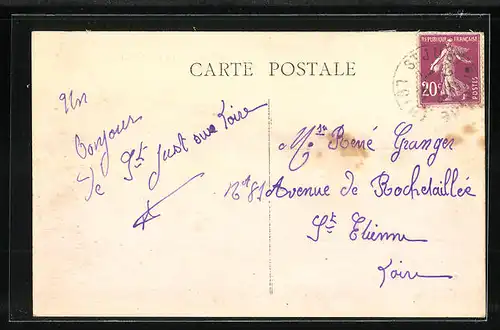 CARTE POSTALE
REPUBLIQUE FRANÇAISE
20c
POSTES
Un
Bonjour
de St Just sur Loire
Mr René Granger
N°81 Avenue de Rochetaillée
St Etienne
Loire